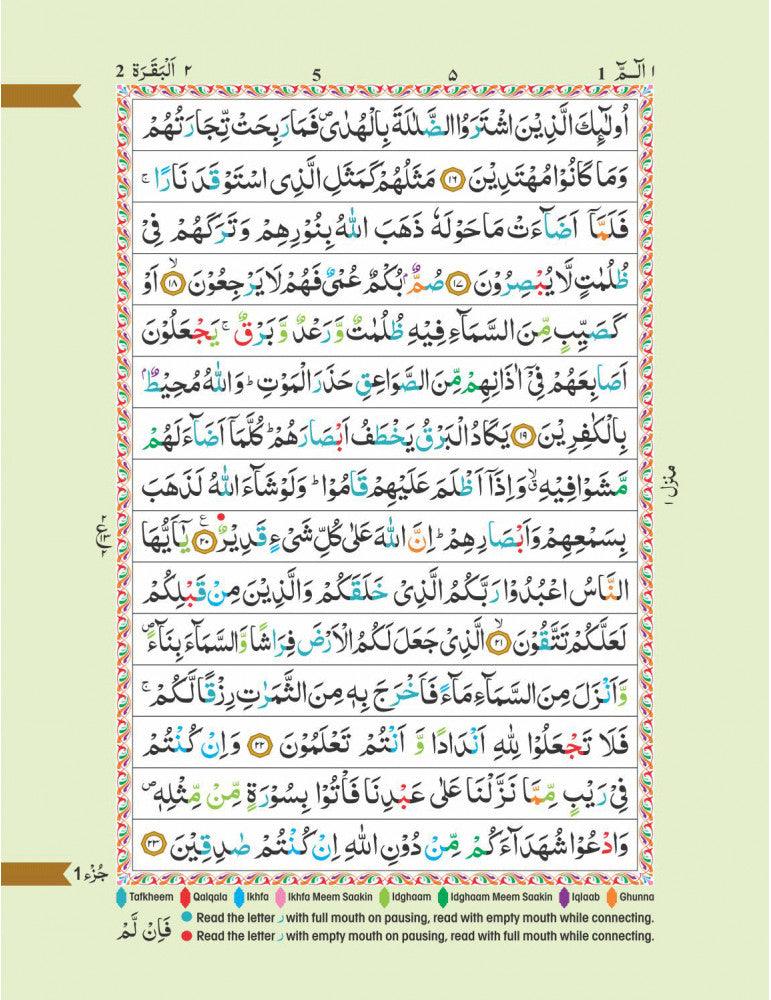 2 اَلْبَقَرَة ٢
5 ۵
1 الٓـمّٓ ١
اُولٰٓئِكَ الَّذِيْنَ اشْتَرَوُا الضَّلٰلَةَ بِالْهُدٰى۪ فَمَا رَبِحَتْ تِّجَارَتُهُمْ
وَمَا كَانُوْا مُهْتَدِيْنَ ۝۱۶ مَثَلُهُمْ كَمَثَلِ الَّذِى اسْتَوْقَدَ نَارًا ۚ
فَلَمَّاۤ اَضَآءَتْ مَا حَوْلَهٗ ذَهَبَ اللّٰهُ بِنُوْرِهِمْ وَتَرَكَهُمْ فِىْ
ظُلُمٰتٍ لَّا يُبْصِرُوْنَ ۝۱۷ صُمٌّۢ بُكْمٌ عُمْىٌ فَهُمْ لَا يَرْجِعُوْنَ ۝۱۸ ۙ اَوْ
كَصَيِّبٍ مِّنَ السَّمَآءِ فِيْهِ ظُلُمٰتٌ وَّرَعْدٌ وَّبَرْقٌ ۚ يَجْعَلُوْنَ
اَصَابِعَهُمْ فِىْۤ اٰذَانِهِمْ مِّنَ الصَّوَاعِقِ حَذَرَ الْمَوْتِ ؕ وَاللّٰهُ مُحِيْطٌۢ
بِالْكٰفِرِيْنَ ۝۱۹ يَكَادُ الْبَرْقُ يَخْطَفُ اَبْصَارَهُمْ ؕ كُلَّمَاۤ اَضَآءَ لَهُمْ
مَّشَوْا فِيْهِ ۙ وَاِذَاۤ اَظْلَمَ عَلَيْهِمْ قَامُوْا ؕ وَلَوْ شَآءَ اللّٰهُ لَذَهَبَ
بِسَمْعِهِمْ وَاَبْصَارِهِمْ ؕ اِنَّ اللّٰهَ عَلٰى كُلِّ شَىْءٍ قَدِيْرٌ ۝۲۰ ع يٰۤاَيُّهَا
النَّاسُ اعْبُدُوْا رَبَّكُمُ الَّذِىْ خَلَقَكُمْ وَالَّذِيْنَ مِنْ قَبْلِكُمْ
لَعَلَّكُمْ تَتَّقُوْنَ ۝۲۱ ۙ الَّذِىْ جَعَلَ لَكُمُ الْاَرْضَ فِرَاشًا وَّالسَّمَآءَ بِنَآءً ۪
وَّاَنْزَلَ مِنَ السَّمَآءِ مَآءً فَاَخْرَجَ بِهٖ مِنَ الثَّمَرٰتِ رِزْقًا لَّكُمْ ۚ
فَلَا تَجْعَلُوْا لِلّٰهِ اَنْدَادًا وَّ اَنْتُمْ تَعْلَمُوْنَ ۝۲۲ وَاِنْ كُنْتُمْ
فِىْ رَيْبٍ مِّمَّا نَزَّلْنَا عَلٰى عَبْدِنَا فَاْتُوْا بِسُوْرَةٍ مِّنْ مِّثْلِهٖ ۪
وَادْعُوْا شُهَدَآءَكُمْ مِّنْ دُوْنِ اللّٰهِ اِنْ كُنْتُمْ صٰدِقِيْنَ ۝۲۳
منزل ١
٢ ع ١٣ ٢
جُزْء 1
Tafkheem Qalqala Ikhfa Ikhfa Meem Saakin Idghaam Idghaam Meem Saakin Iqlaab Ghunna
Read the letter ر with full mouth on pausing, read with empty mouth while connecting.
Read the letter ر with empty mouth on pausing, read with full mouth while connecting.
فَاِنْ لَّمْ